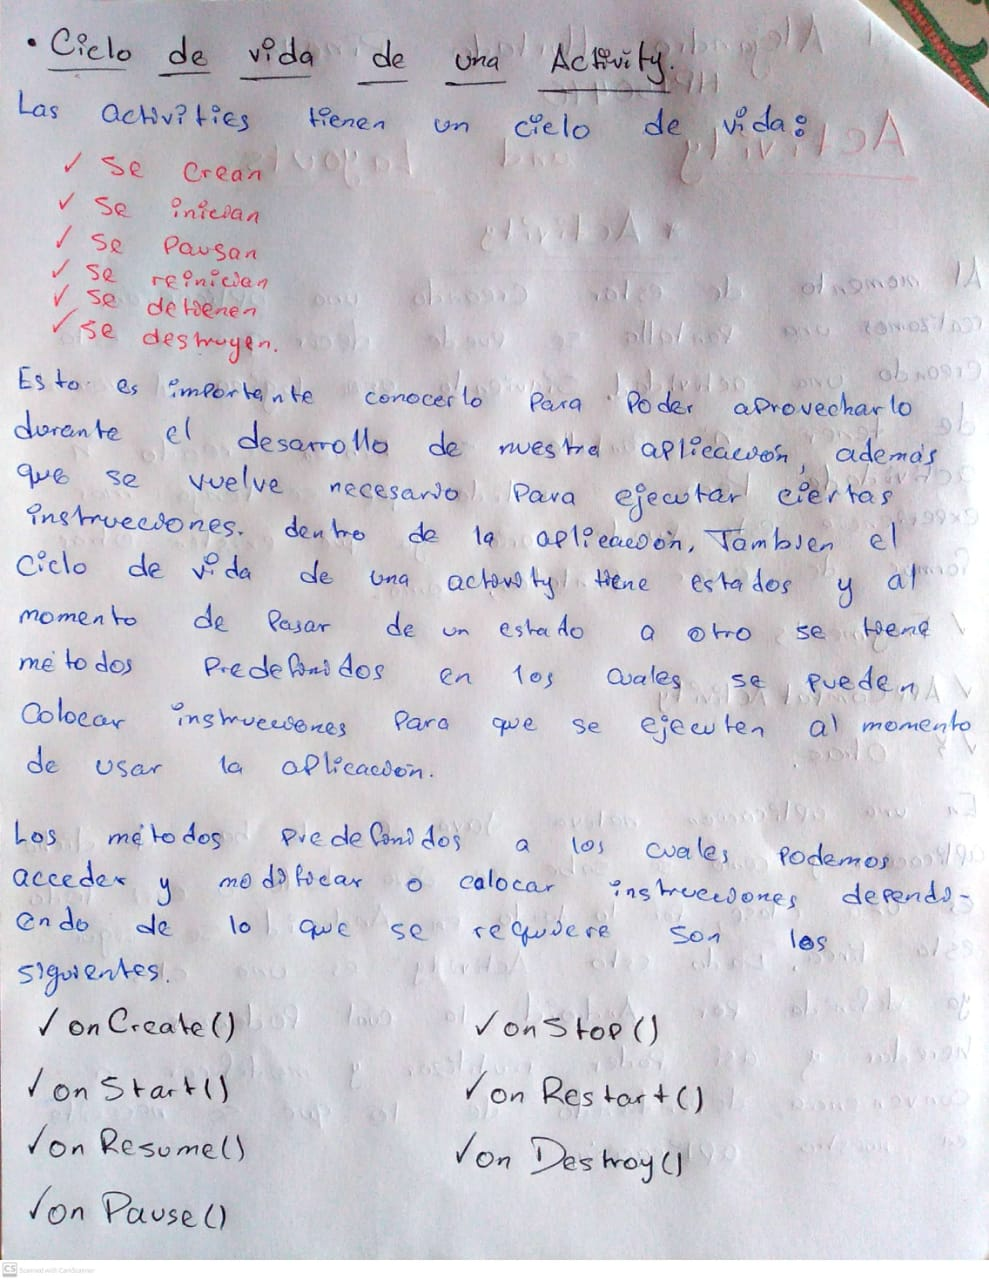 • Ciclo de vida de una Activity.
Las activities tienen un ciclo de vida:
✓ se crean
✓ se inician
✓ se Pausan
✓ se reinician
✓ se detienen
✓ se destruyen.
Esto es importante conocerlo Para Poder aprovecharlo
durante el desarrollo de nuestra aplicación, además
que se vuelve necesario Para ejecutar ciertas
instrucciones. dentro de la aplicación. Tambien el
Ciclo de vida de una activity tiene estados y al
momento de Pasar de un estado a otro se tiene
métodos Predefinidos en los cuales se pueden
Colocar instrucciones Para que se ejecuten al momento
de usar la aplicación.
Los métodos Predefinidos a los cuales Podemos
acceder y modificar o calocar instrucciones dependi-
endo de lo que se requiere son los
siguientes.
✓ onCreate() ✓ onStop()
✓ onStart() ✓ on Restart()
✓ on Resume() ✓ on Destroy()
✓ on Pause()
CS Scanned with CamScanner